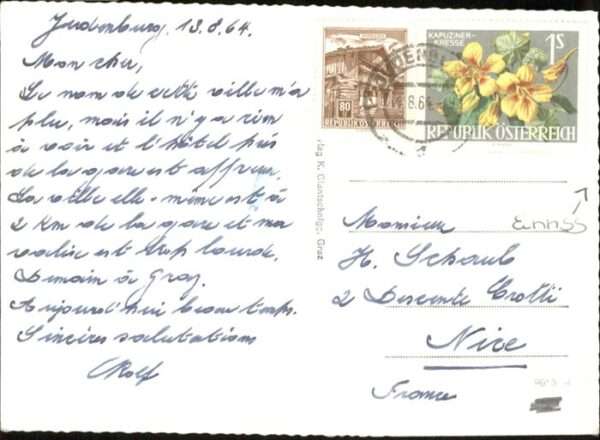 Judenburg, 13.8.64.
Mon cher,
Le nom de cette ville m'a
plu, mais il n'y a rien
à voir et l'hôtel près
de la gare est affreux.
La ville elle-même est à
2 Km de la gare et ma
valise est trop lourde.
Demain à Graz.
Aujourd'hui beau temps.
Sincères salutations
Rolf
80
REPUBLIK ÖSTERREICH
KAPUZINER-
KRESSE
1S
REPUBLIK ÖSTERREICH
Monsieur
H. Schaub
2 Descente Crotti
Nice
France